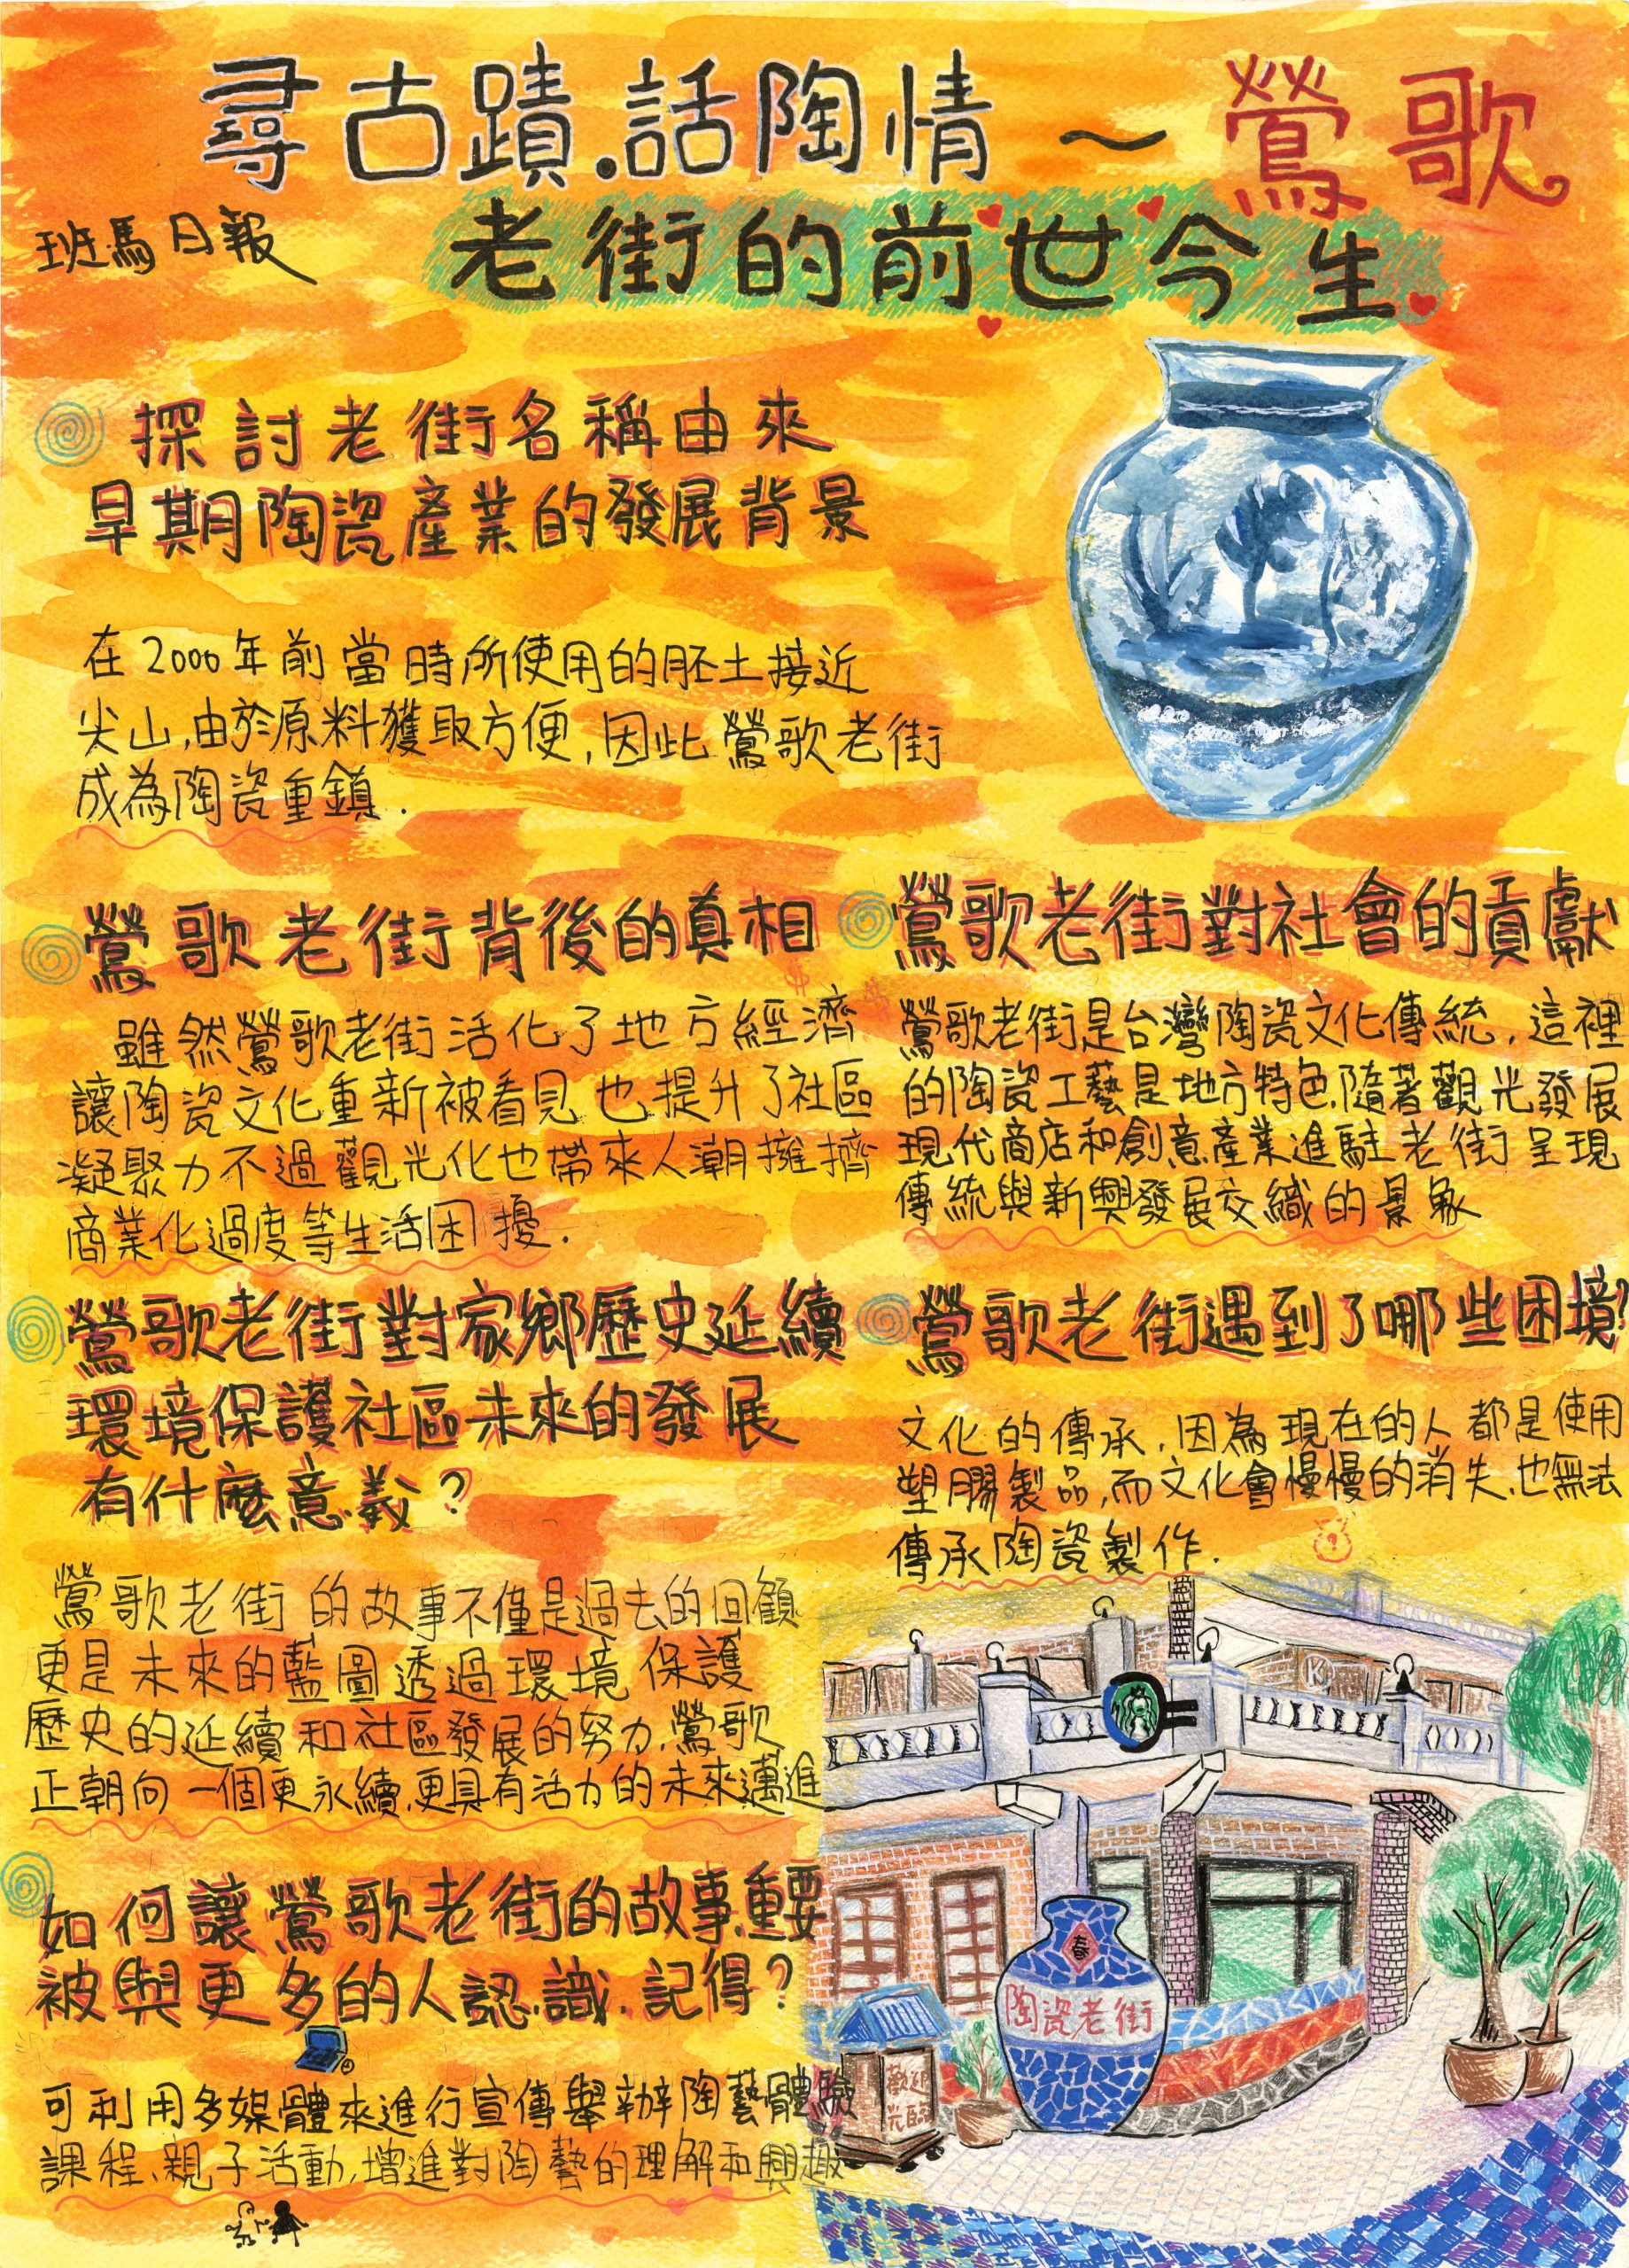 尋古蹟.話陶情～鶯歌
老街的前世今生
班馬日報
探討老街名稱由來
早期陶瓷產業的發展背景
在2000年前當時所使用的胚土接近
尖山,由於原料獲取方便,因此鶯歌老街
成為陶瓷重鎮.
鶯歌老街背後的真相
雖然鶯歌老街活化了地方經濟
讓陶瓷文化重新被看見也提升了社區
凝聚力不過觀光化也帶來人潮擁擠
商業化過度等生活困擾.
鶯歌老街對社會的貢獻
鶯歌老街是台灣陶瓷文化傳統,這裡
的陶瓷工藝是地方特色,隨著觀光發展
現代商店和創意產業進駐老街呈現
傳統與新興發展交織的景象
鶯歌老街對家鄉歷史延續
環境保護社區未來的發展
有什麼意義?
鶯歌老街的故事不僅是過去的回顧
更是未來的藍圖透過環境保護
歷史的延續和社區發展的努力,鶯歌
正朝向一個更永續,更具有活力的未來邁進
鶯歌老街遇到了哪些困境?
文化的傳承,因為現在的人都是使用
塑膠製品,而文化會慢慢的消失,也無法
傳承陶瓷製作.
如何讓鶯歌老街的故事,重要
被與更多的人認識、記得?
可利用多媒體來進行宣傳舉辦陶藝體驗
課程、親子活動,增進對陶藝的理解和興趣
K
春
陶瓷老街
歡迎
光臨